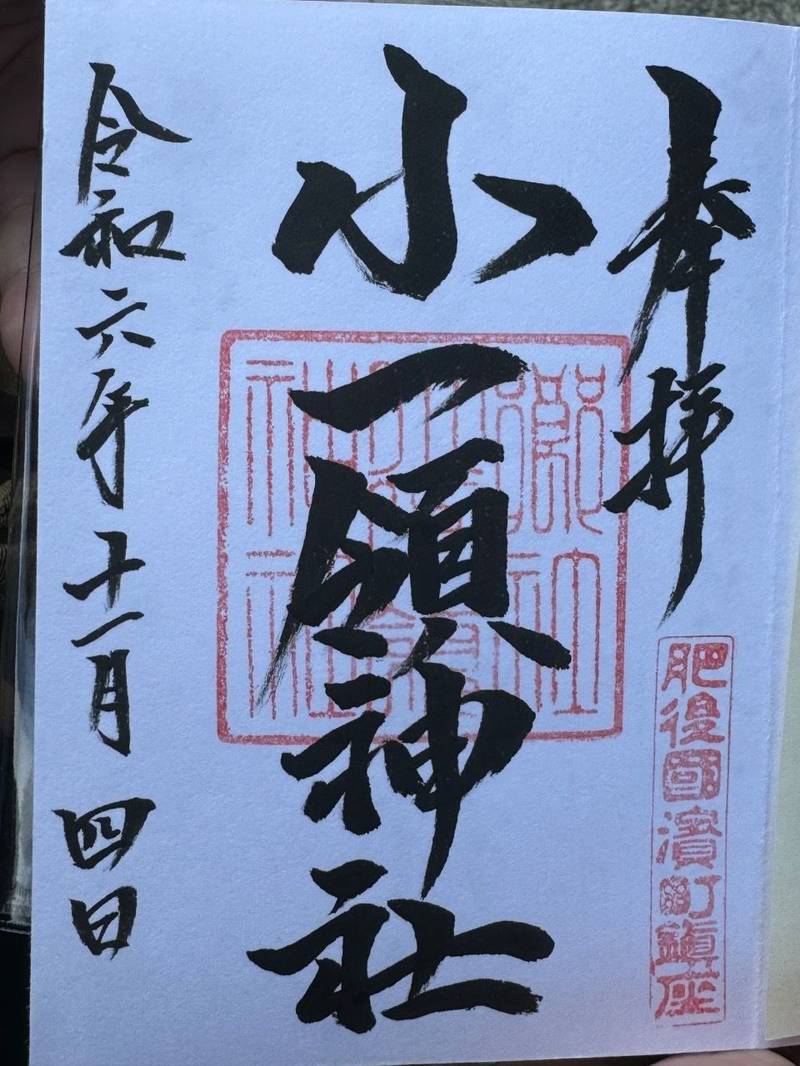 奉拝
肥後國濱町鎮座
小一領神社
令和六年十一月四日